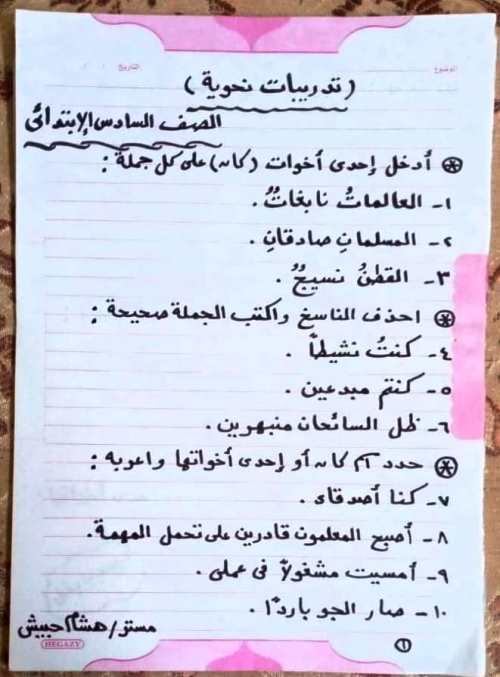 الموضوع
التاريخ / /
(تدريبات نحوية)
الصف السادس الإبتدائى
* أدخل إحدى أخوات (كان) على كل جملة :
١- العالماتُ نابغاتٌ .
٢- المسلمانِ صادقانِ .
٣- القطنُ نسيجٌ .
* احذف الناسخ واكتب الجملة صحيحة :
٤- كنتُ نشيطاً .
٥- كنتم مبدعين .
٦- ظل السائحان منبهرين .
* حدد اسم كان أو إحدى أخواتها واعربه :
٧- كنا أصدقاء .
٨- أصبح المعلمون قادرين على تحمل المهمة .
٩- أمسيت مشغولاً فى عملى .
١٠- صار الجو باردًا .
مستر/ هشام حبيش
HEGAZY
١